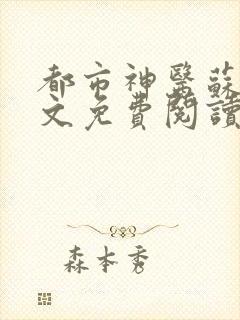 都市神醫蘇
文免費閱讀
森本秀